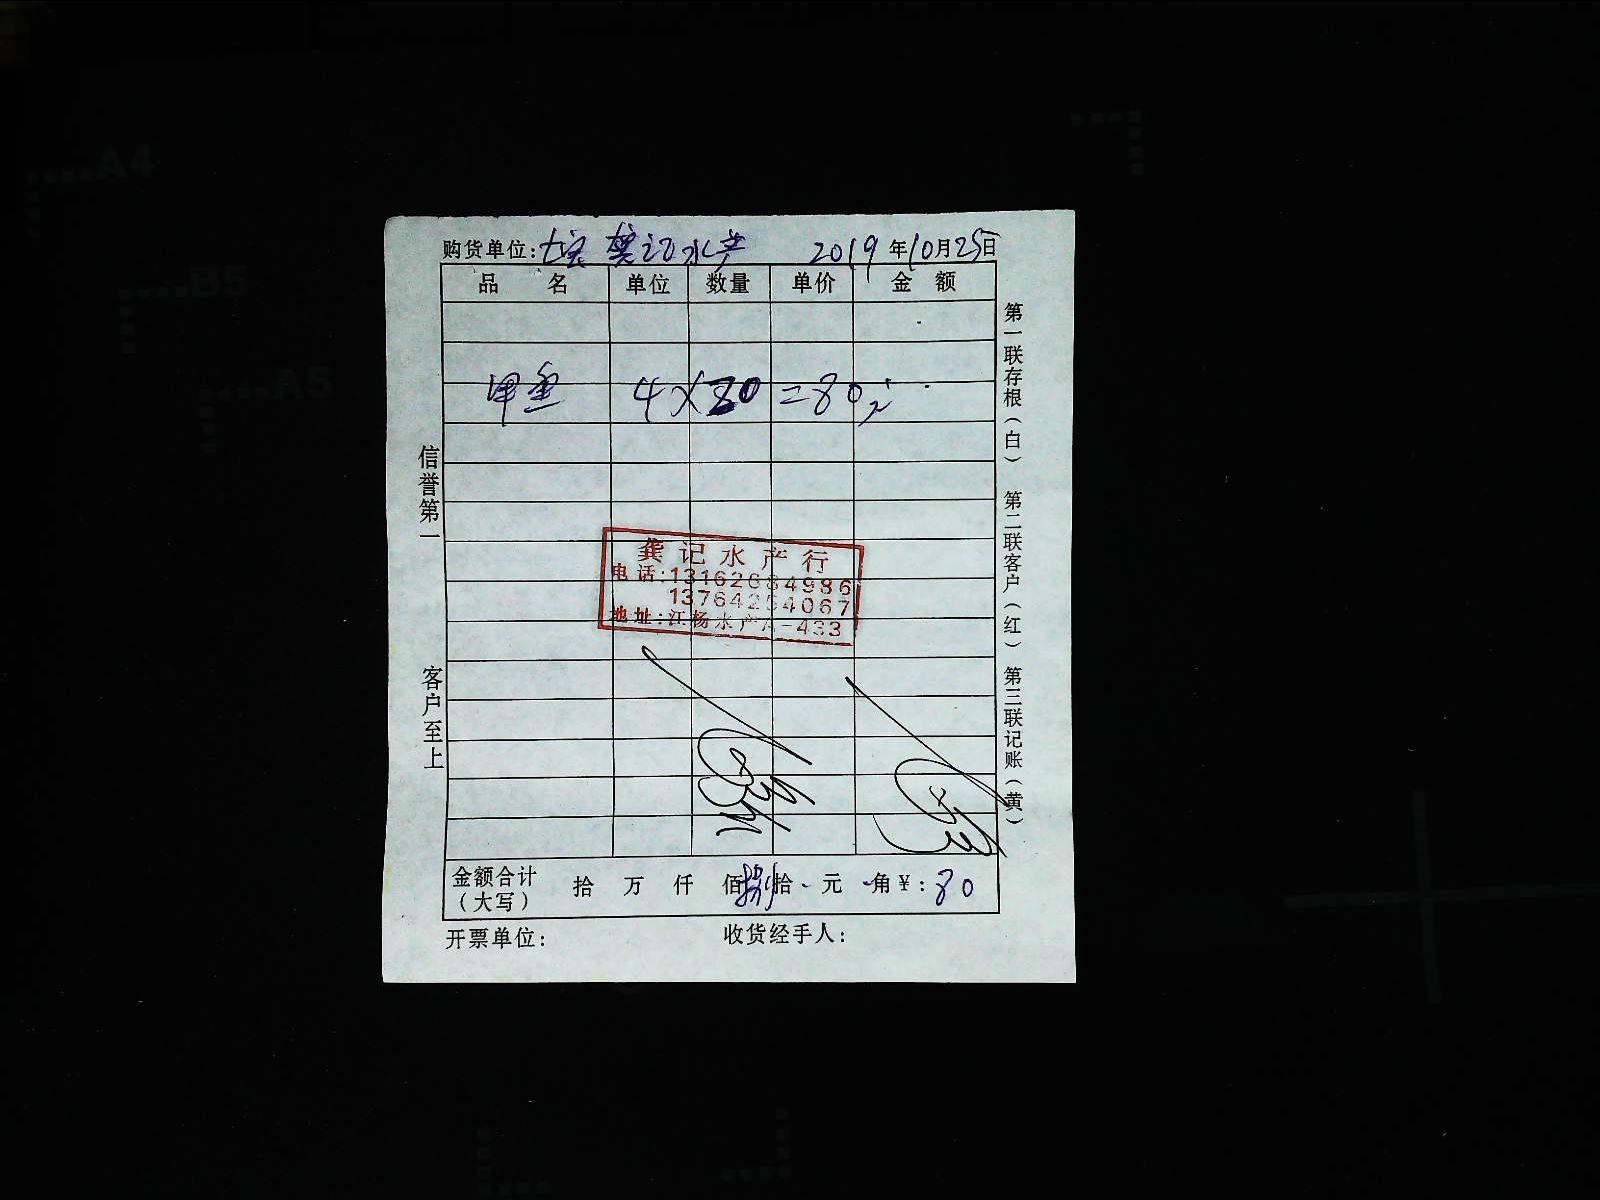 购货单位: 龚记水产 2019年10月25日
品名 单位 数量 单价 金额
甲鱼 4×20=80元
龚记水产行
电话:13162684986
13764254067
地址:江杨水产A-433
金额合计(大写) 拾 万 仟 佰 捌拾 元 角 ¥:80
开票单位: 收货经手人:
信誉第一 客户至上
第一联存根(白) 第二联客户(红) 第三联记账(黄)
A4
B5
A5